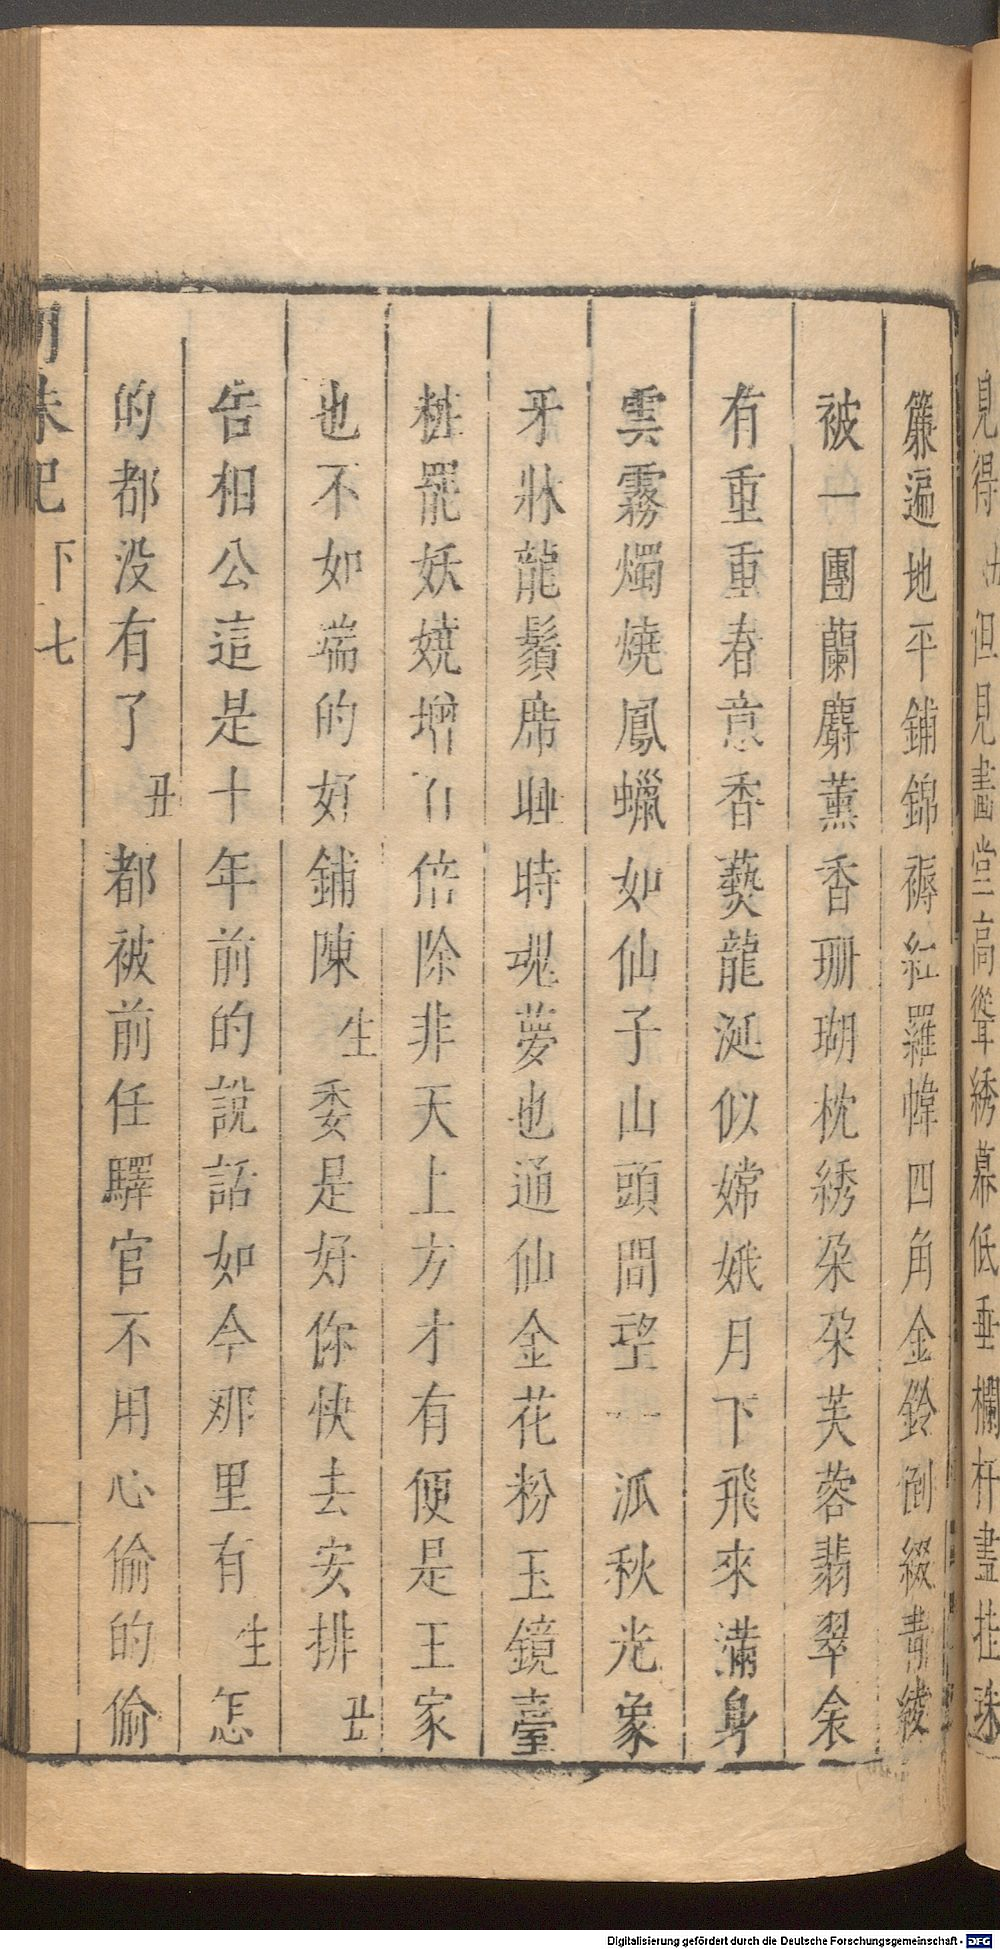 見得 但見畫堂高聳綉幕低垂欄杆畫挂珠
簾遍地平鋪錦褥紅羅幃四角金鈴倒綴青綾
被一團蘭麝薰香珊瑚枕綉朶朶芙蓉翡翠余
有重重春意香爇龍涎似嫦娥月下飛來滿身
雲霧燭燒鳳蠟如仙子山頭間望一派秋光象
牙牀龍鬚席 時魂夢也通仙金花粉玉鏡臺
粧罷妖嬈增 倍除非天上方才有便是王家
也不如端的好鋪陳生委是好你快去安排丑
告相公這是十年前的說話如今那里有生怎
的都没有了丑都被前任驛官不用心偷的偷
明珠記 下 七
Digitalisierung gefördert durch die Deutsche Forschungsgemeinschaft - DFG